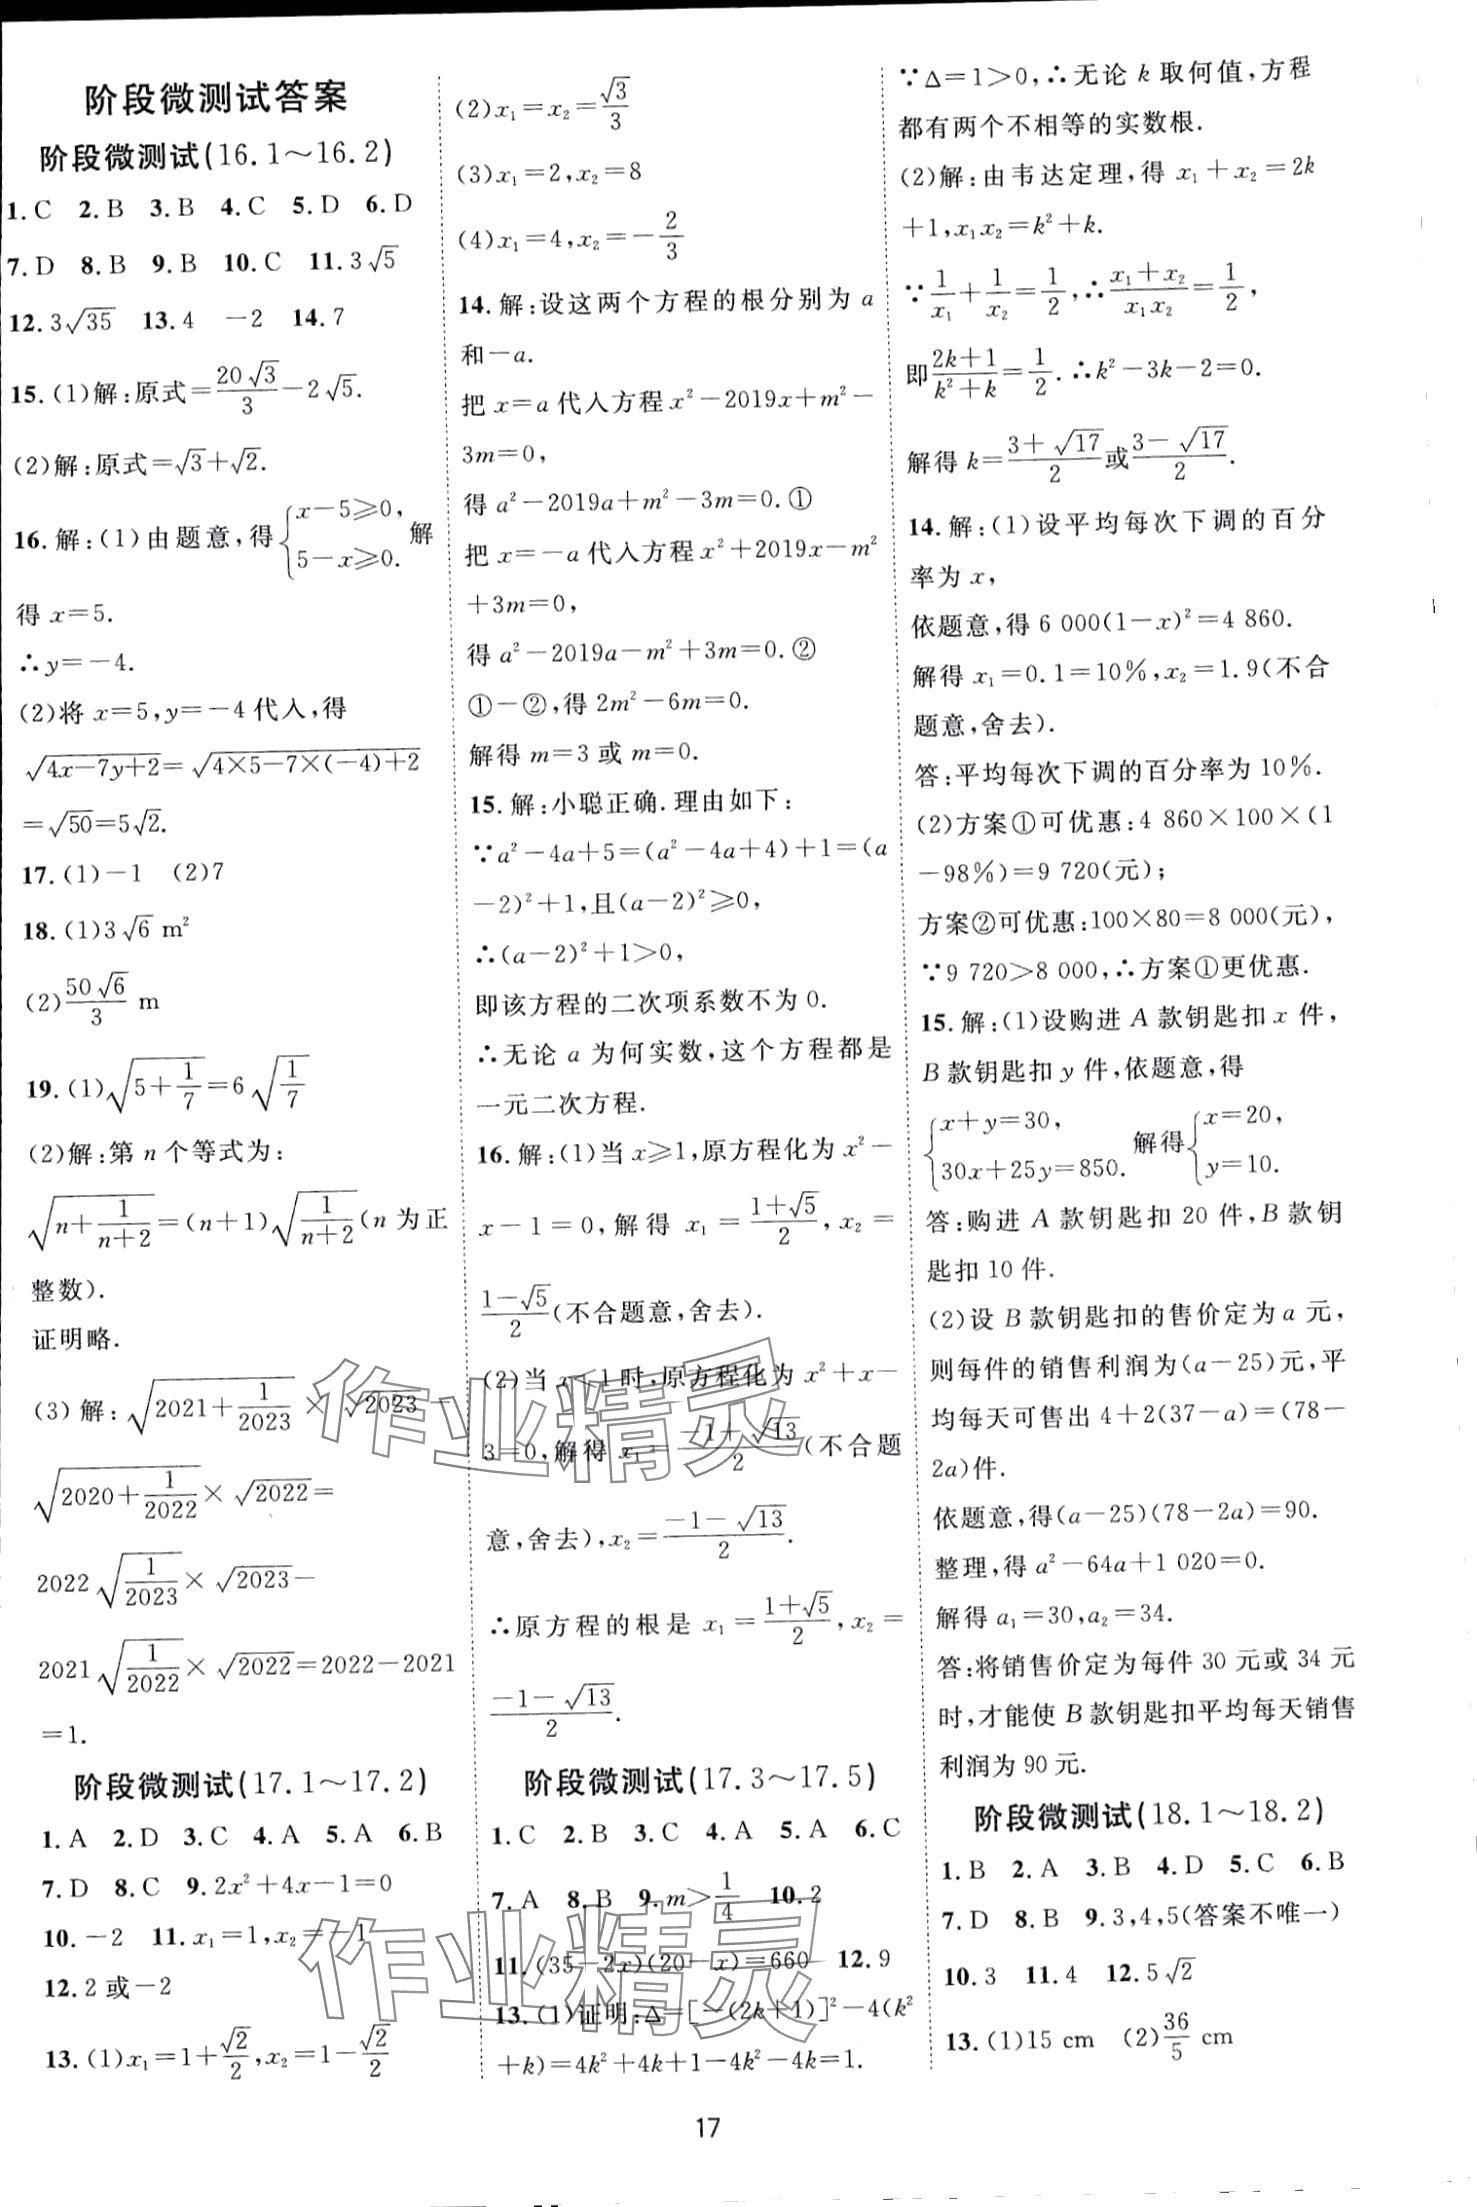 阶段微测试答案
阶段微测试(16.1～16.2)
1.C 2.B 3.B 4.C 5.D 6.D
7.D 8.B 9.B 10.C 11.3√5
12.3√35 13.4 -2 14.7
15.(1)解:原式=20√3/3-2√5.
(2)解:原式=√3+√2.
16.解:(1)由题意,得{x-5≥0, 5-x≥0. 解
得 x=5.
∴y=-4.
(2)将 x=5,y=-4代入,得
√(4x-7y+2)=√(4×5-7×(-4)+2)
=√50=5√2.
17.(1)-1 (2)7
18.(1)3√6 m²
(2)50√6/3 m
19.(1)√(5+1/7)=6√(1/7)
(2)解:第 n 个等式为:
√(n+1/(n+2))=(n+1)√(1/(n+2))(n 为正
整数).
证明略.
(3)解:√(2021+1/2023)×√2023-
√(2020+1/2022)×√2022=
2022√(1/2023)×√2023-
2021√(1/2022)×√2022=2022-2021
=1.
阶段微测试(17.1～17.2)
1.A 2.D 3.C 4.A 5.A 6.B
7.D 8.C 9.2x²+4x-1=0
10.-2 11.x₁=1,x₂=-1
12.2或-2
13.(1)x₁=1+√2/2,x₂=1-√2/2
(2)x₁=x₂=√3/3
(3)x₁=2,x₂=8
(4)x₁=4,x₂=-2/3
14.解:设这两个方程的根分别为 a
和-a.
把 x=a 代入方程 x²-2019x+m²-
3m=0,
得 a²-2019a+m²-3m=0.①
把 x=-a 代入方程 x²+2019x-m²
+3m=0,
得 a²-2019a-m²+3m=0.②
①-②,得 2m²-6m=0.
解得 m=3 或 m=0.
15.解:小聪正确.理由如下:
∵a²-4a+5=(a²-4a+4)+1=(a
-2)²+1,且(a-2)²≥0,
∴(a-2)²+1>0,
即该方程的二次项系数不为 0.
∴无论 a 为何实数,这个方程都是
一元二次方程.
16.解:(1)当 x≥1,原方程化为 x²-
x-1=0,解得 x₁=(1+√5)/2,x₂=
(1-√5)/2(不合题意,舍去).
(2)当 x<1时,原方程化为 x²+x-
3=0,解得 x₁=(-1+√13)/2(不合题
意,舍去),x₂=(-1-√13)/2.
∴原方程的根是 x₁=(1+√5)/2,x₂=
(-1-√13)/2.
阶段微测试(17.3～17.5)
1.C 2.B 3.C 4.A 5.A 6.C
7.A 8.B 9.m>1/4 10.2
11.(35-2x)(20-x)=660 12.9
13.(1)证明:Δ=[-(2k+1)]²-4(k²
+k)=4k²+4k+1-4k²-4k=1.
∵Δ=1>0,∴无论 k 取何值,方程
都有两个不相等的实数根.
(2)解:由韦达定理,得 x₁+x₂=2k
+1,x₁x₂=k²+k.
∵1/x₁+1/x₂=1/2,∴(x₁+x₂)/(x₁x₂)=1/2,
即(2k+1)/(k²+k)=1/2.∴k²-3k-2=0.
解得 k=(3+√17)/2或(3-√17)/2.
14.解:(1)设平均每次下调的百分
率为 x,
依题意,得 6 000(1-x)²=4 860.
解得 x₁=0.1=10%,x₂=1.9(不合
题意,舍去).
答:平均每次下调的百分率为 10%.
(2)方案①可优惠:4 860×100×(1
-98%)=9 720(元);
方案②可优惠:100×80=8 000(元),
∵9 720>8 000,∴方案①更优惠.
15.解:(1)设购进 A 款钥匙扣 x 件,
B 款钥匙扣 y 件,依题意,得
{x+y=30, 30x+25y=850. 解得{x=20, y=10.
答:购进 A 款钥匙扣 20 件,B 款钥
匙扣 10 件.
(2)设 B 款钥匙扣的售价定为 a 元,
则每件的销售利润为(a-25)元,平
均每天可售出 4+2(37-a)=(78-
2a)件.
依题意,得(a-25)(78-2a)=90.
整理,得 a²-64a+1 020=0.
解得 a₁=30,a₂=34.
答:将销售价定为每件 30 元或 34 元
时,才能使 B 款钥匙扣平均每天销售
利润为 90 元.
阶段微测试(18.1～18.2)
1.B 2.A 3.B 4.D 5.C 6.B
7.D 8.B 9.3,4,5(答案不唯一)
10.3 11.4 12.5√2
13.(1)15 cm (2)36/5 cm
17
作业精灵
作业精灵